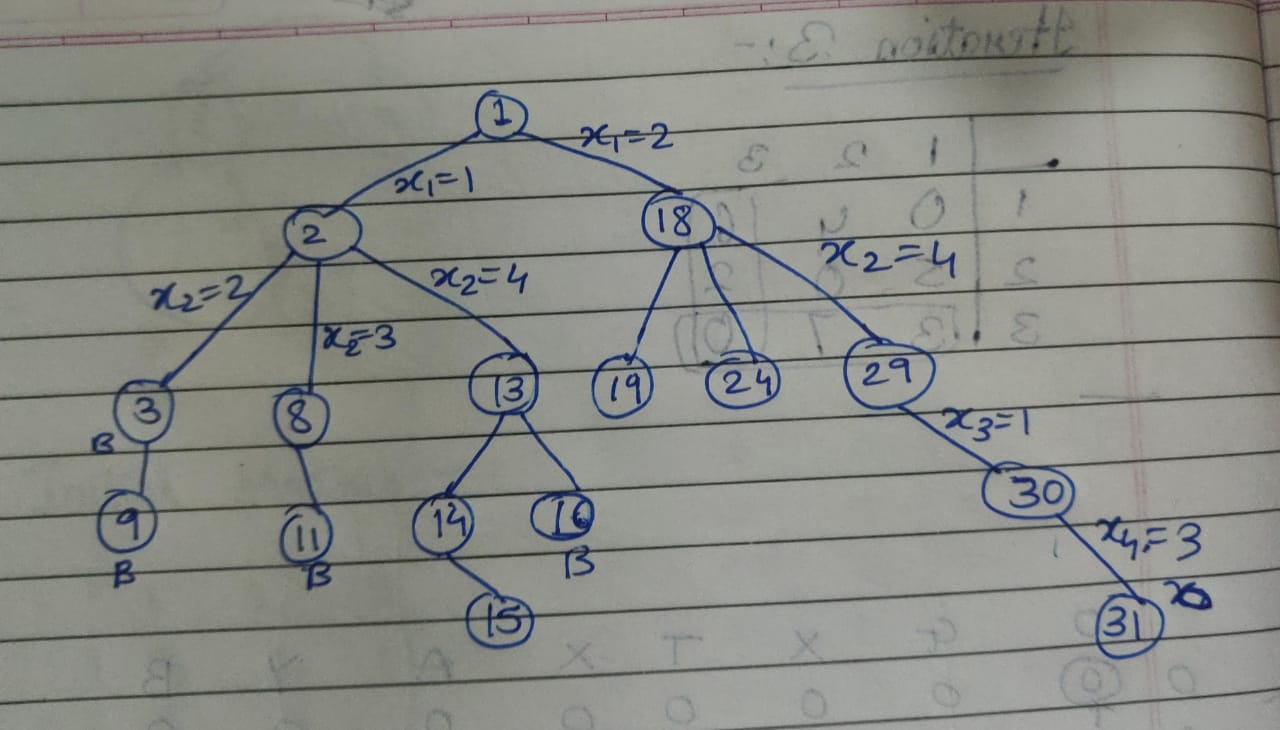 1
x₁=1 x₁=2
2 18
x₂=2 x₂=3 x₂=4 x₂=4
3 8 13 19 24 29
B
x₃=1
9 11 14 16 30
B B B
x₄=3
15 31